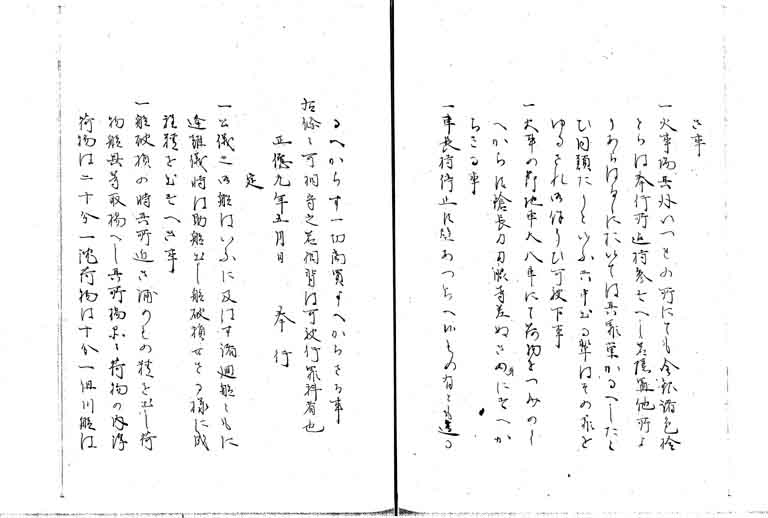 さる事
一火事場其外いつれの所にても金銀諸色拾
とらは奉行所迄持参すへし若隠置他所より
あらはるゝにおいては其罪重かるへしたと
ひ同類たりといふとも申出る輩はその罪を
ゆるされ御ほうひ可被下事
一火事の節地車大八車にて荷物をつみのく
へからす鎗長刀刀脇差ぬき身にすへか
らさる事
一車長持停止たとあつらへ候もの有とも造る
るへからす一切商買すへからさる事
右條々可相守之若相背は可被行罪科者也
正徳元年五月日 奉行
定
一公儀之御船はいふに及はす諸廻船ともに
逢難儀時は助船出し船破損せさる様に成
程精を出すへき事
一船破損の時其所近き浦のもの精を出し荷
物船具等取揚へし其所揚る荷物の内浮
荷物は二十分一沈荷物は十分一但川船は